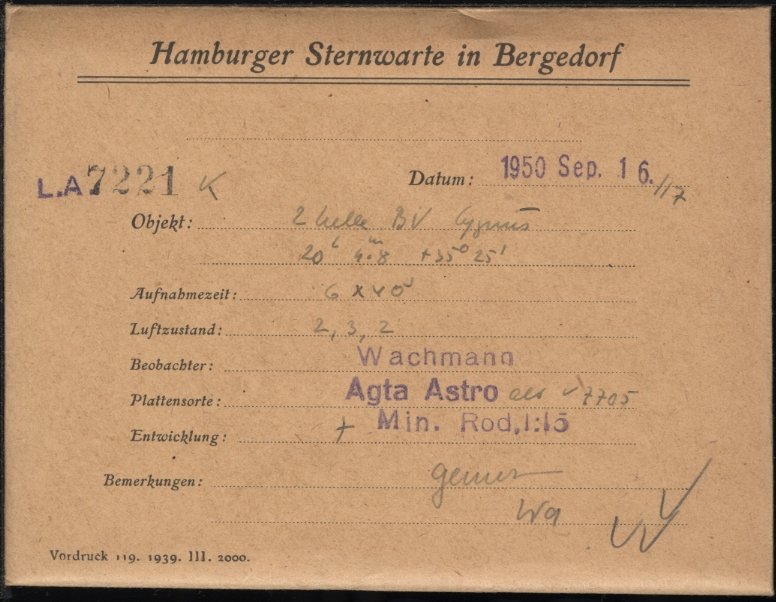 Hamburger Sternwarte in Bergedorf
L.A 7221 K
Datum: 1950 Sep. 16./17
Objekt: 2 helle BV Cygnus
20h 4m.8 +35° 25'
Aufnahmezeit: 6 x
Luftzustand: 2, 3, 2
Beobachter: Wachmann
Plattensorte: Agfa Astro 7705
Entwicklung: 7 Min. Rod. 1:15
Bemerkungen:
Wa
Vordruck 119. 1939. III. 2000.